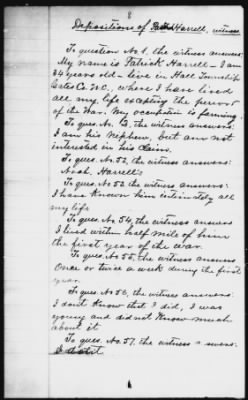 8
Depositions of Patrick Harrell, witness
To question No. 1. the witness answers:
My name is Patrick Harrell - I am
34 years old - live in Hall Township
Gates Co. N.C., where I have lived
all my life excepting the period
of the War. My occupation is farming
To ques. No. 2, the witness answers:
I am his Nephew, but am not
interested in his claim.
To ques. No. 52, the witness answers:
Noah. Harrell's
To ques. No 53 the witness answers:
I have known him intimately all
my life
To ques. No. 54, the witness answers
I lived within half mile of him
the first year of the war.
To ques. No. 55, the witness answers
Once or twice a week during the first
year.
To ques No 56, the witness answers:
I dont know that I did, I was
young and did not know much
about it
To ques. No. 57. the witness answers:
I didnt